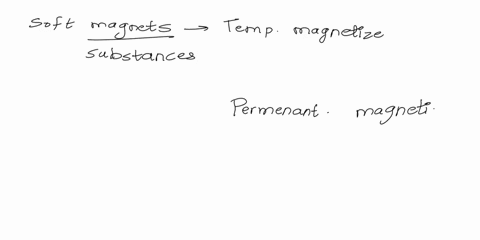 Soft magnets → Temp. magnetize
substances
Permenant. magneti.